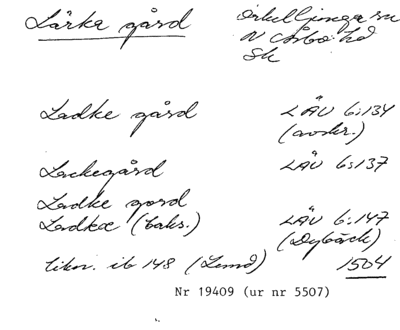 Lärka gård Örkelljunga sn
N Åsbo hd
Sk
Ladke gård LÄU 6:134
(avskr.)
Lackegård LÄU 6:137
Ladke gord
Ladka (baks.) LÄU 6:147
(Dybäck)
likn. ib 148 (Lemd) 1504
Nr 19409 (ur nr 5507)